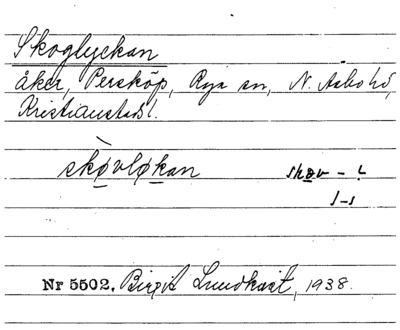 Skoglyckan
åker, Perskóp, Rya sn, N. Åsbo hd,
Kristianstads l.
skǫvlǫkan skǫv – ḷ
l–s
Nr 5502. Birgit Lundkvist, 1938.